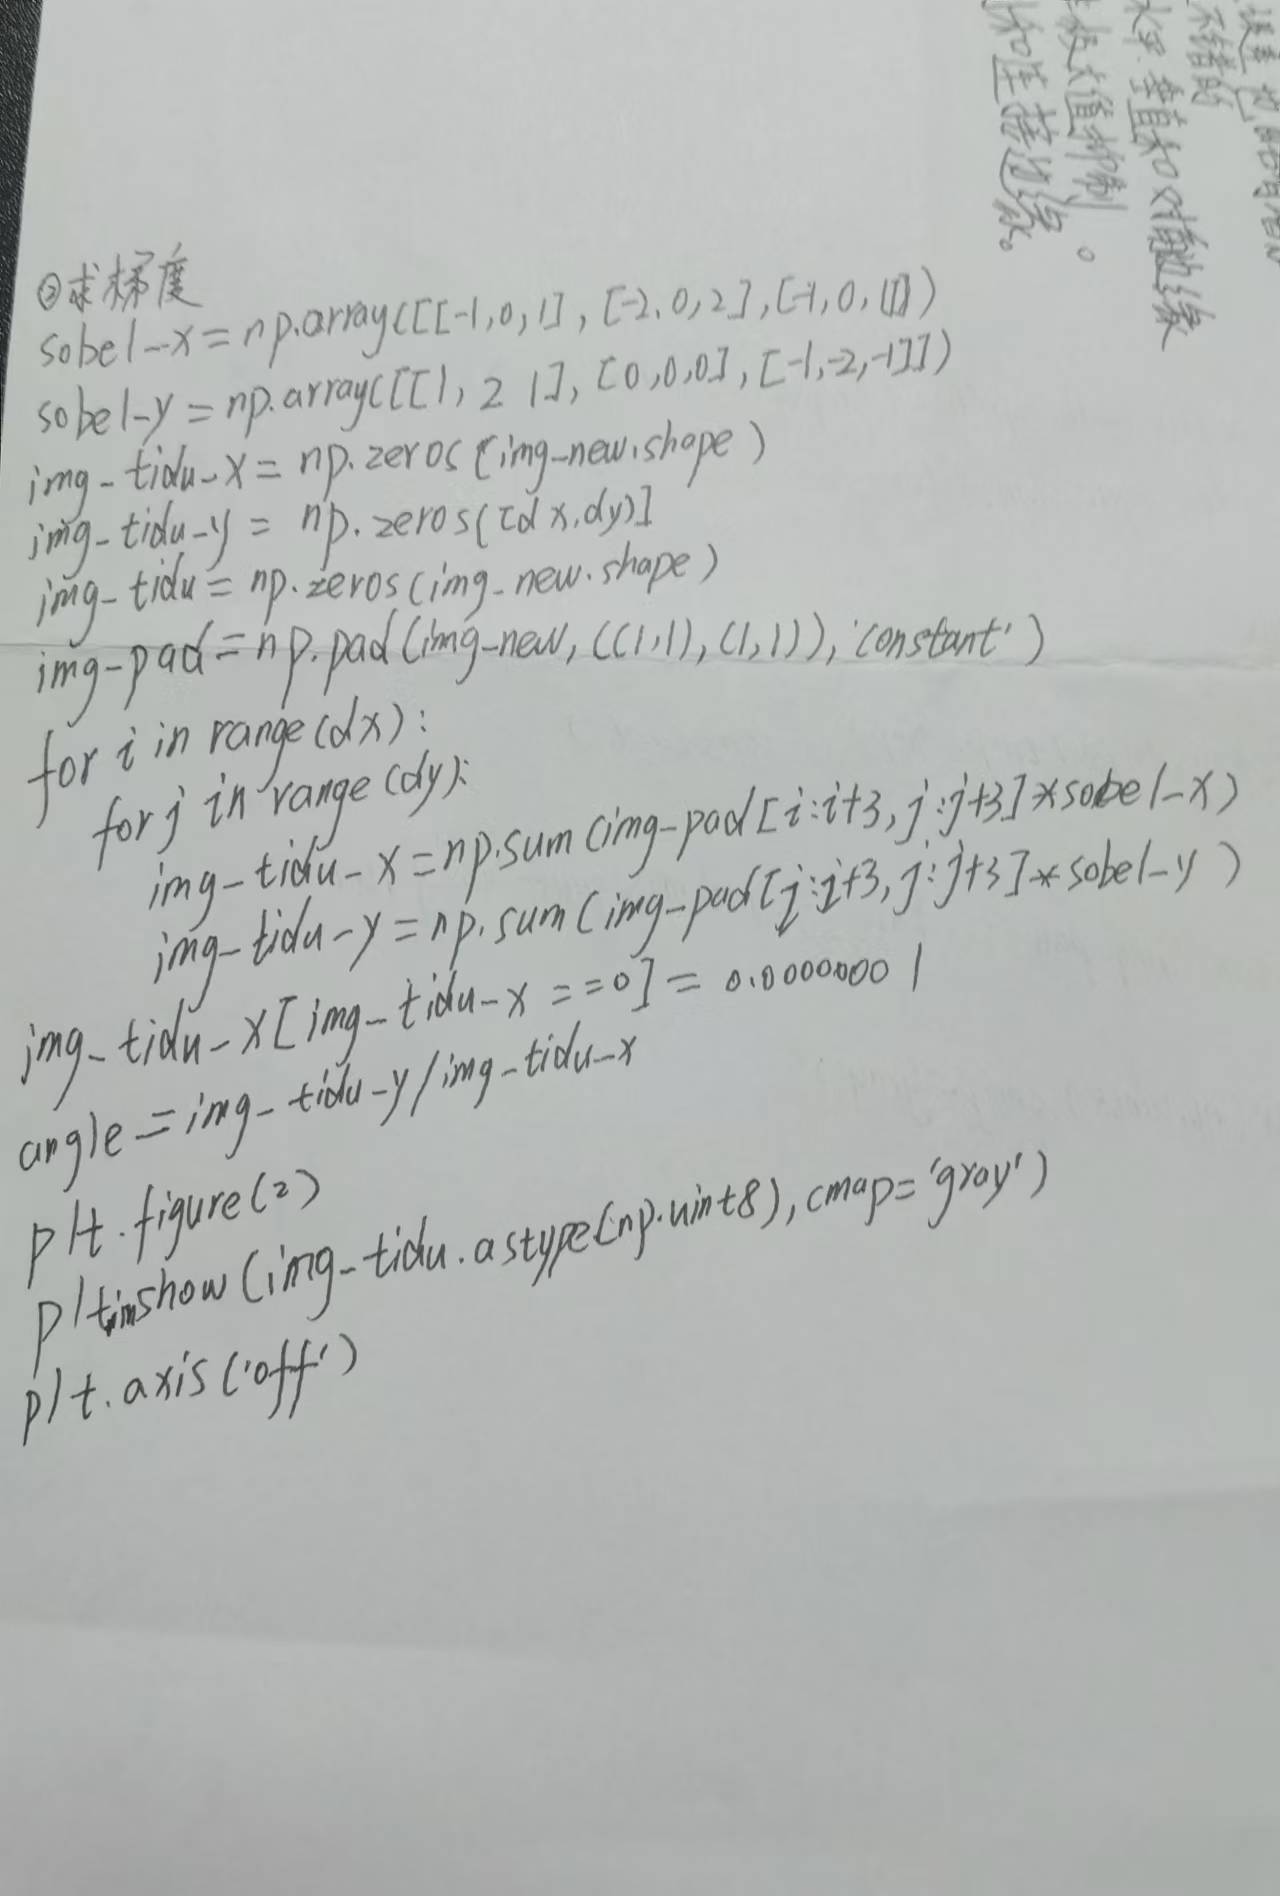 ②求梯度
sobel-x = np.array([[-1,0,1], [-2,0,2], [-1,0,1]])
sobel-y = np.array([[1, 2 1], [0,0,0], [-1,-2,-1]])
img-tidu-x = np.zeros[img-new.shape)
img-tidu-y = np.zeros([dx,dy)]
img-tidu = np.zeros(img-new.shape)
img-pad = np.pad(img-new, ((1,1),(1,1)), 'constant')
for i in range(dx):
for j in range(dy):
img-tidu-x = np.sum(img-pad[i:i+3, j:j+3]*sobel-x)
img-tidu-y = np.sum(img-pad[j:j+3, j:j+3]*sobel-y)
img-tidu-x[img-tidu-x ==0] = 0.00000001
angle = img-tidu-y/img-tidu-x
plt.figure(2)
plt.imshow(img-tidu.astype(np.uint8), cmap='gray')
plt.axis('off')
不错的
水平.垂直和对角边缘
极大值抑制。
和连接边缘。